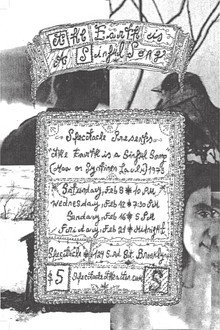 The Earth is
A Sinful Song
Spectacle Presents
The Earth is a Sinful Song
Saturday, Feb 8 @ 10 PM
Wednesday, Feb 12 @ 7:30 PM
Sunday, Feb 16 @ 5 PM
Friday, Feb 21 @ Midnight
Spectacle @ 124 S. 3rd St. Brooklyn
$5
S